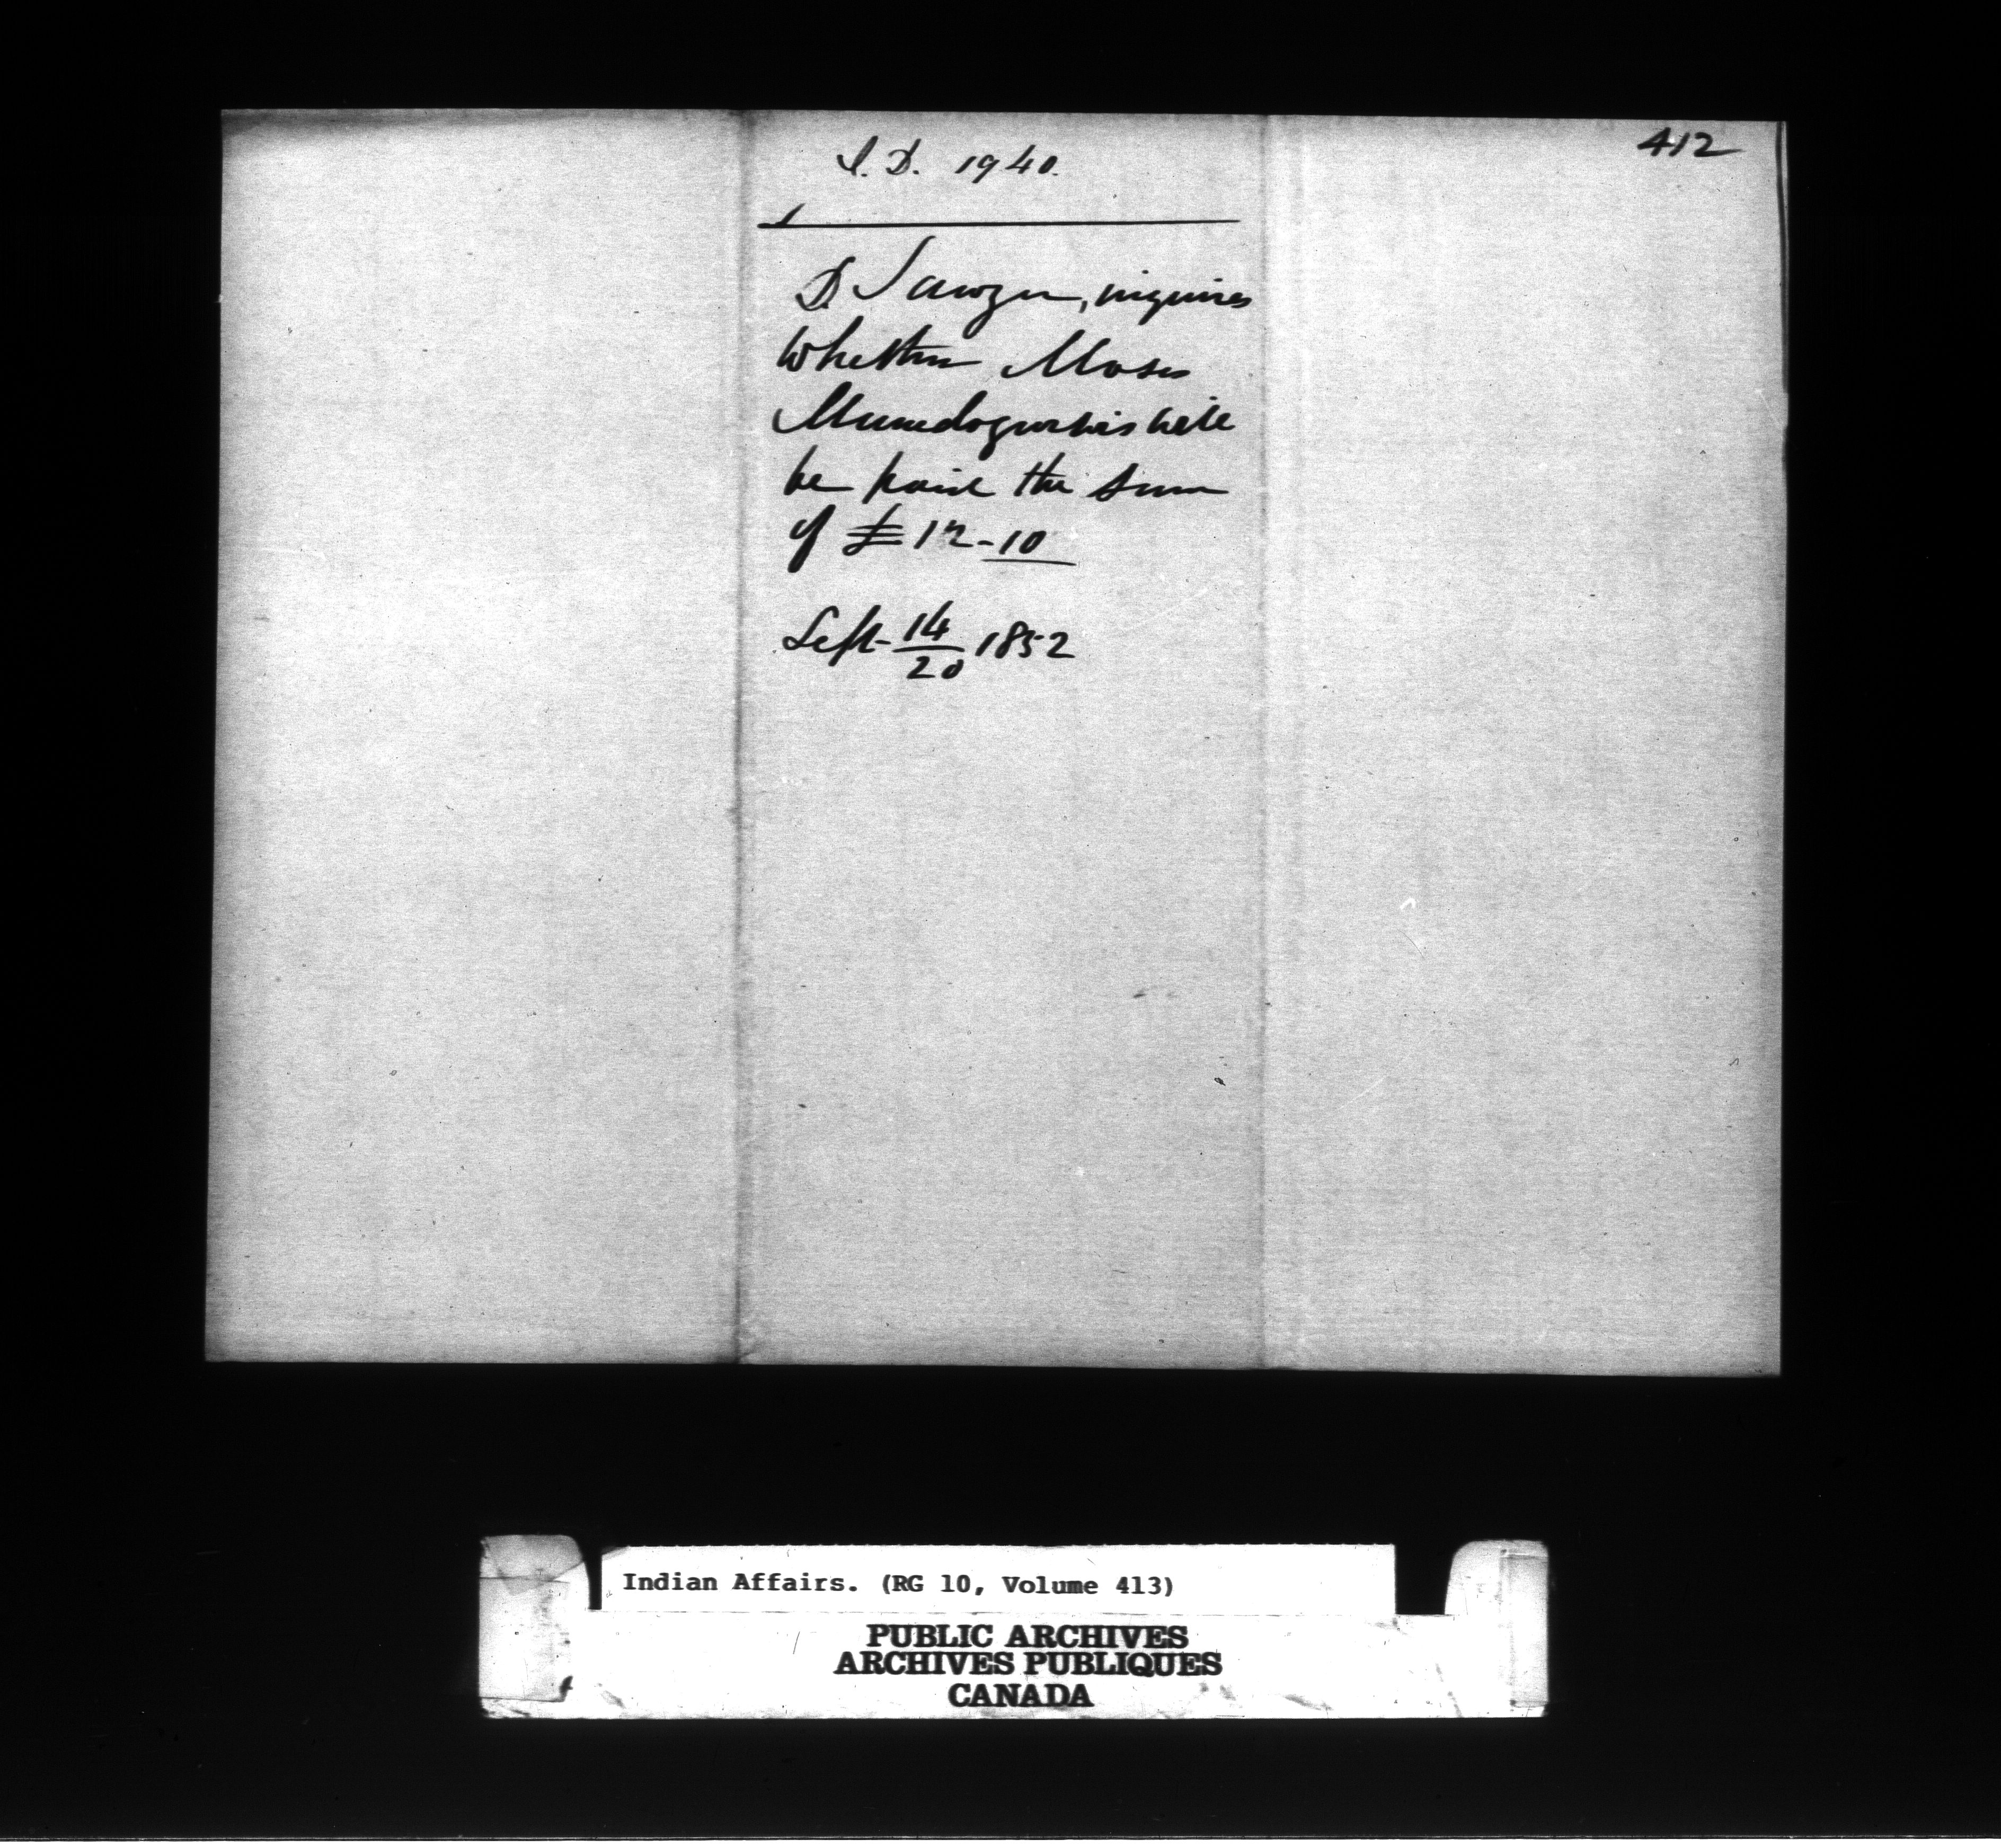 412
I. D. 1940.
D Sawyer, inquires
whether Moses
will
be paid the sum
of £12-10
Sept 14/20 1852
Indian Affairs. (RG 10, Volume 413)
PUBLIC ARCHIVES
ARCHIVES PUBLIQUES
CANADA